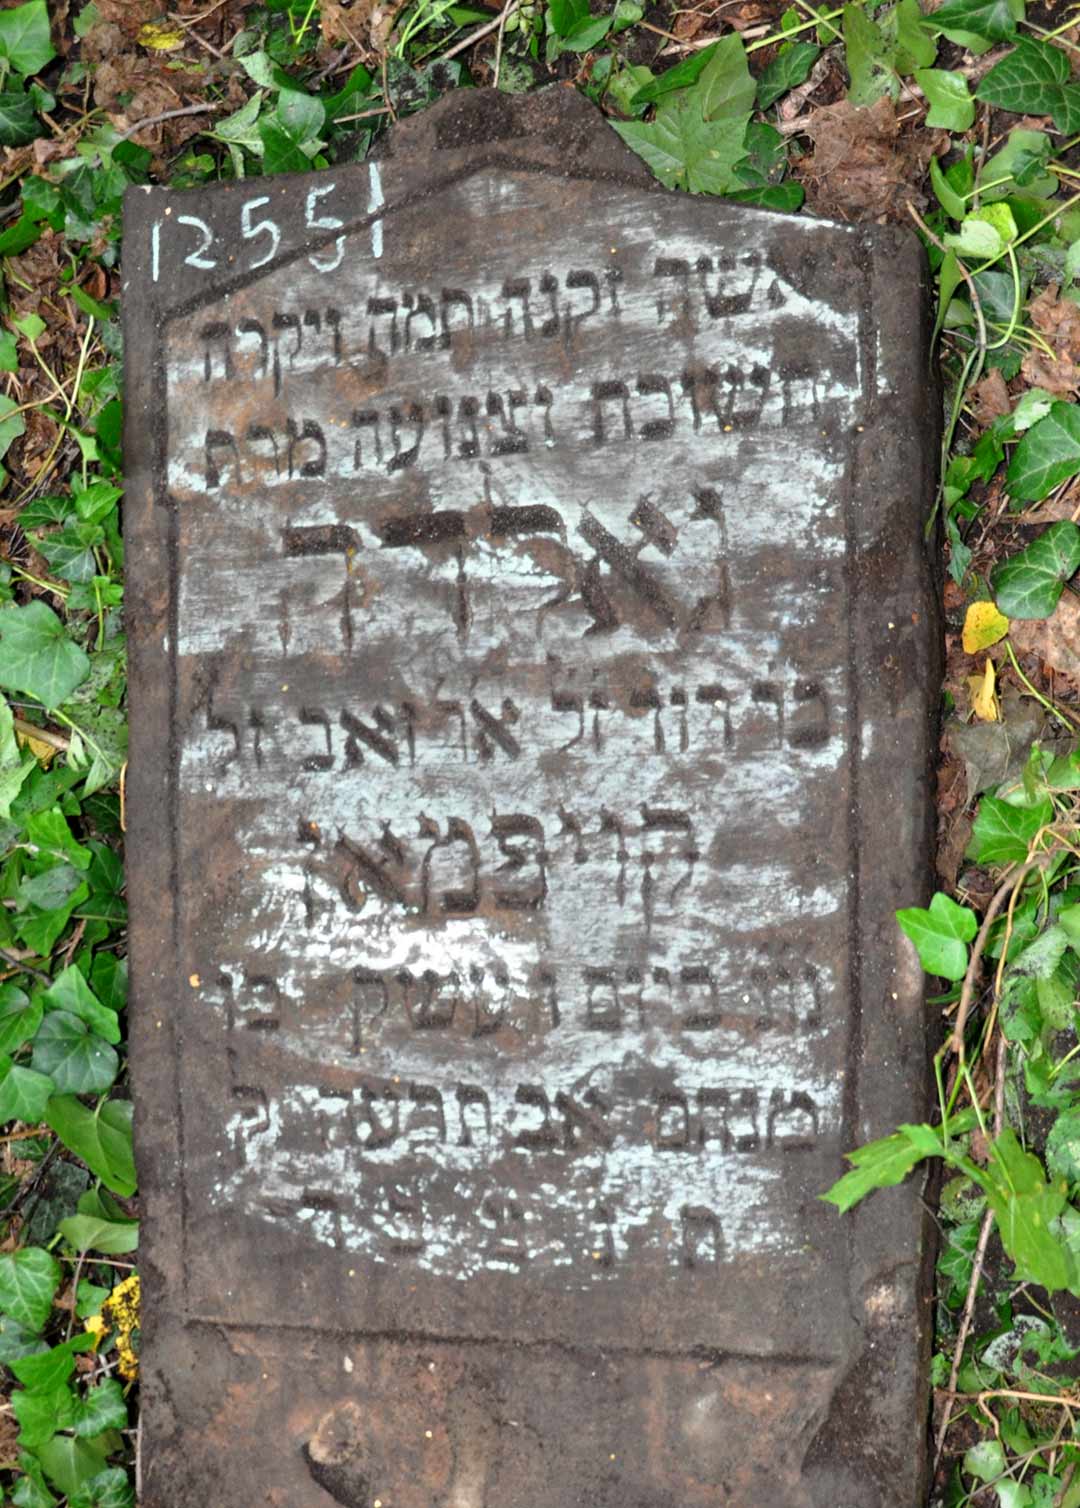 12551
אשה זקנה תמה ויקרה
חשובה וצנועה מרת
גאלדה
בר דוד זל אך ואב זל
קויפמאן
ונ ביום ו עשק כו
מנחם אב תרעד ל
ת נ צ ב ה